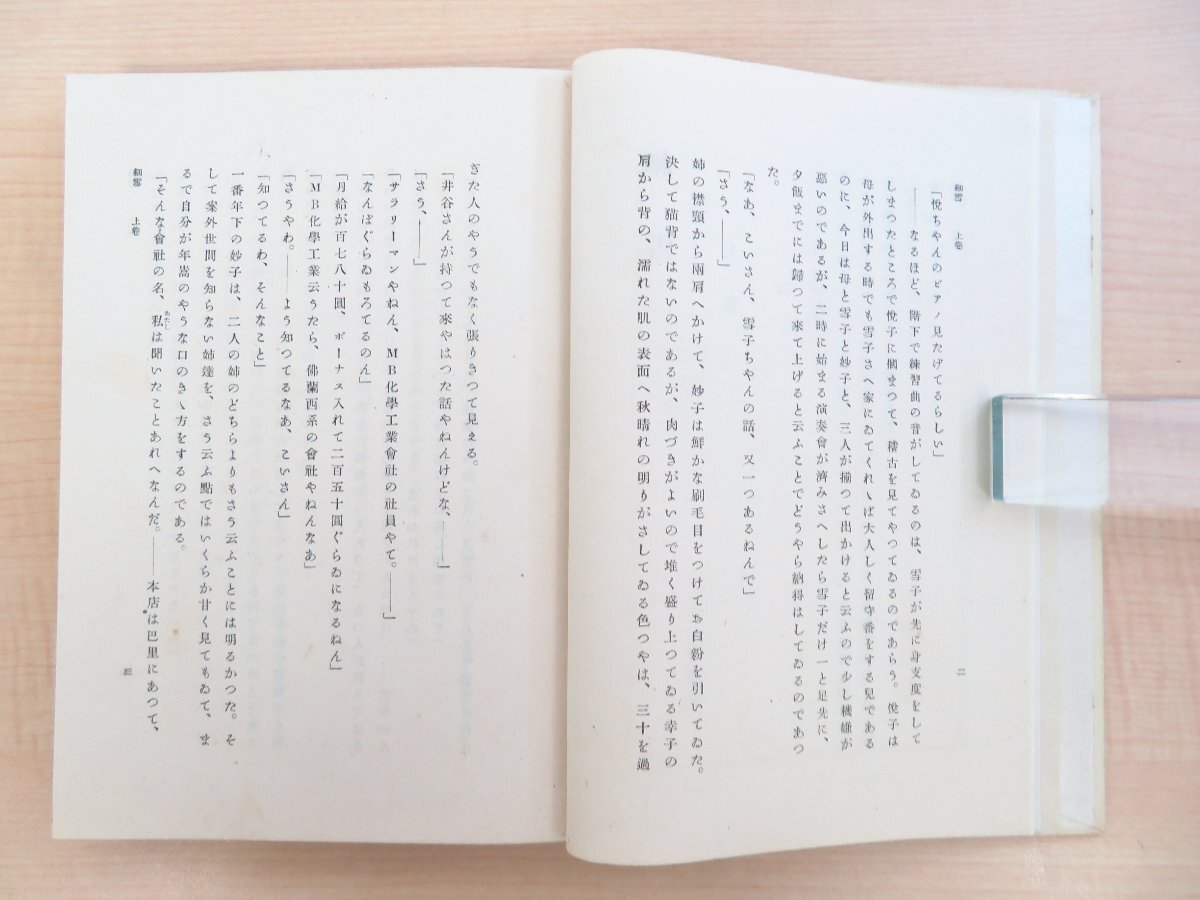 細雪　上卷
二
「悅ちやんのピアノ見たげてるらしい」
――なるほど、階下で練習曲の音がしてゐるのは、雪子が先に身支度をして
しまつたところで悅子に摑まつて、稽古を見てやつてゐるのであらう。悅子は
母が外出する時でも雪子さへ家にゐてくれゝば大人しく留守番をする兒である
のに、今日は母と雪子と妙子と、三人が揃つて出かけると云ふので少し機嫌が
惡いのであるが、二時に始まる演奏會が濟みさへしたら雪子だけ一と足先に、
夕飯までには歸つて來て上げると云ふことでどうやら納得はしてゐるのであつ
た。
「なあ、こいさん、雪子ちやんの話、又一つあるねんで」
「さう、――」
姉の襟頸から兩肩へかけて、妙子は鮮かな刷毛目をつけてお白粉を引いてゐた。
決して猫背ではないのであるが、肉づきがよいので堆く盛り上つてゐる幸子の
肩から背の、濡れた肌の表面へ秋晴れの明りがさしてゐる色つやは、三十を過
ぎた人のやうでもなく張りきつて見える。
「井谷さんが持つて來やはつた話やねんけどな、――」
「さう、――」
「サラリーマンやねん、ＭＢ化學工業會社の社員やて。――」
「なんぼぐらゐもろてるのん」
「月給が百七八十圓、ボーナス入れて二百五十圓ぐらゐになるねん」
「ＭＢ化學工業云うたら、佛蘭西系の會社やねんなあ」
「さうやわ。――よう知つてるなあ、こいさん」
「知つてるわ、そんなこと」
一番年下の妙子は、二人の姉のどちらよりもさう云ふことには明るかつた。そ
して案外世間を知らない姉達を、さう云ふ點ではいくらか甘く見てもゐて、ま
るで自分が年嵩のやうな口のきゝ方をするのである。
「そんな會社の名、私は聞いたことあれへなんだ。――本店は巴里にあつて、
あたし
細雪　上卷
三